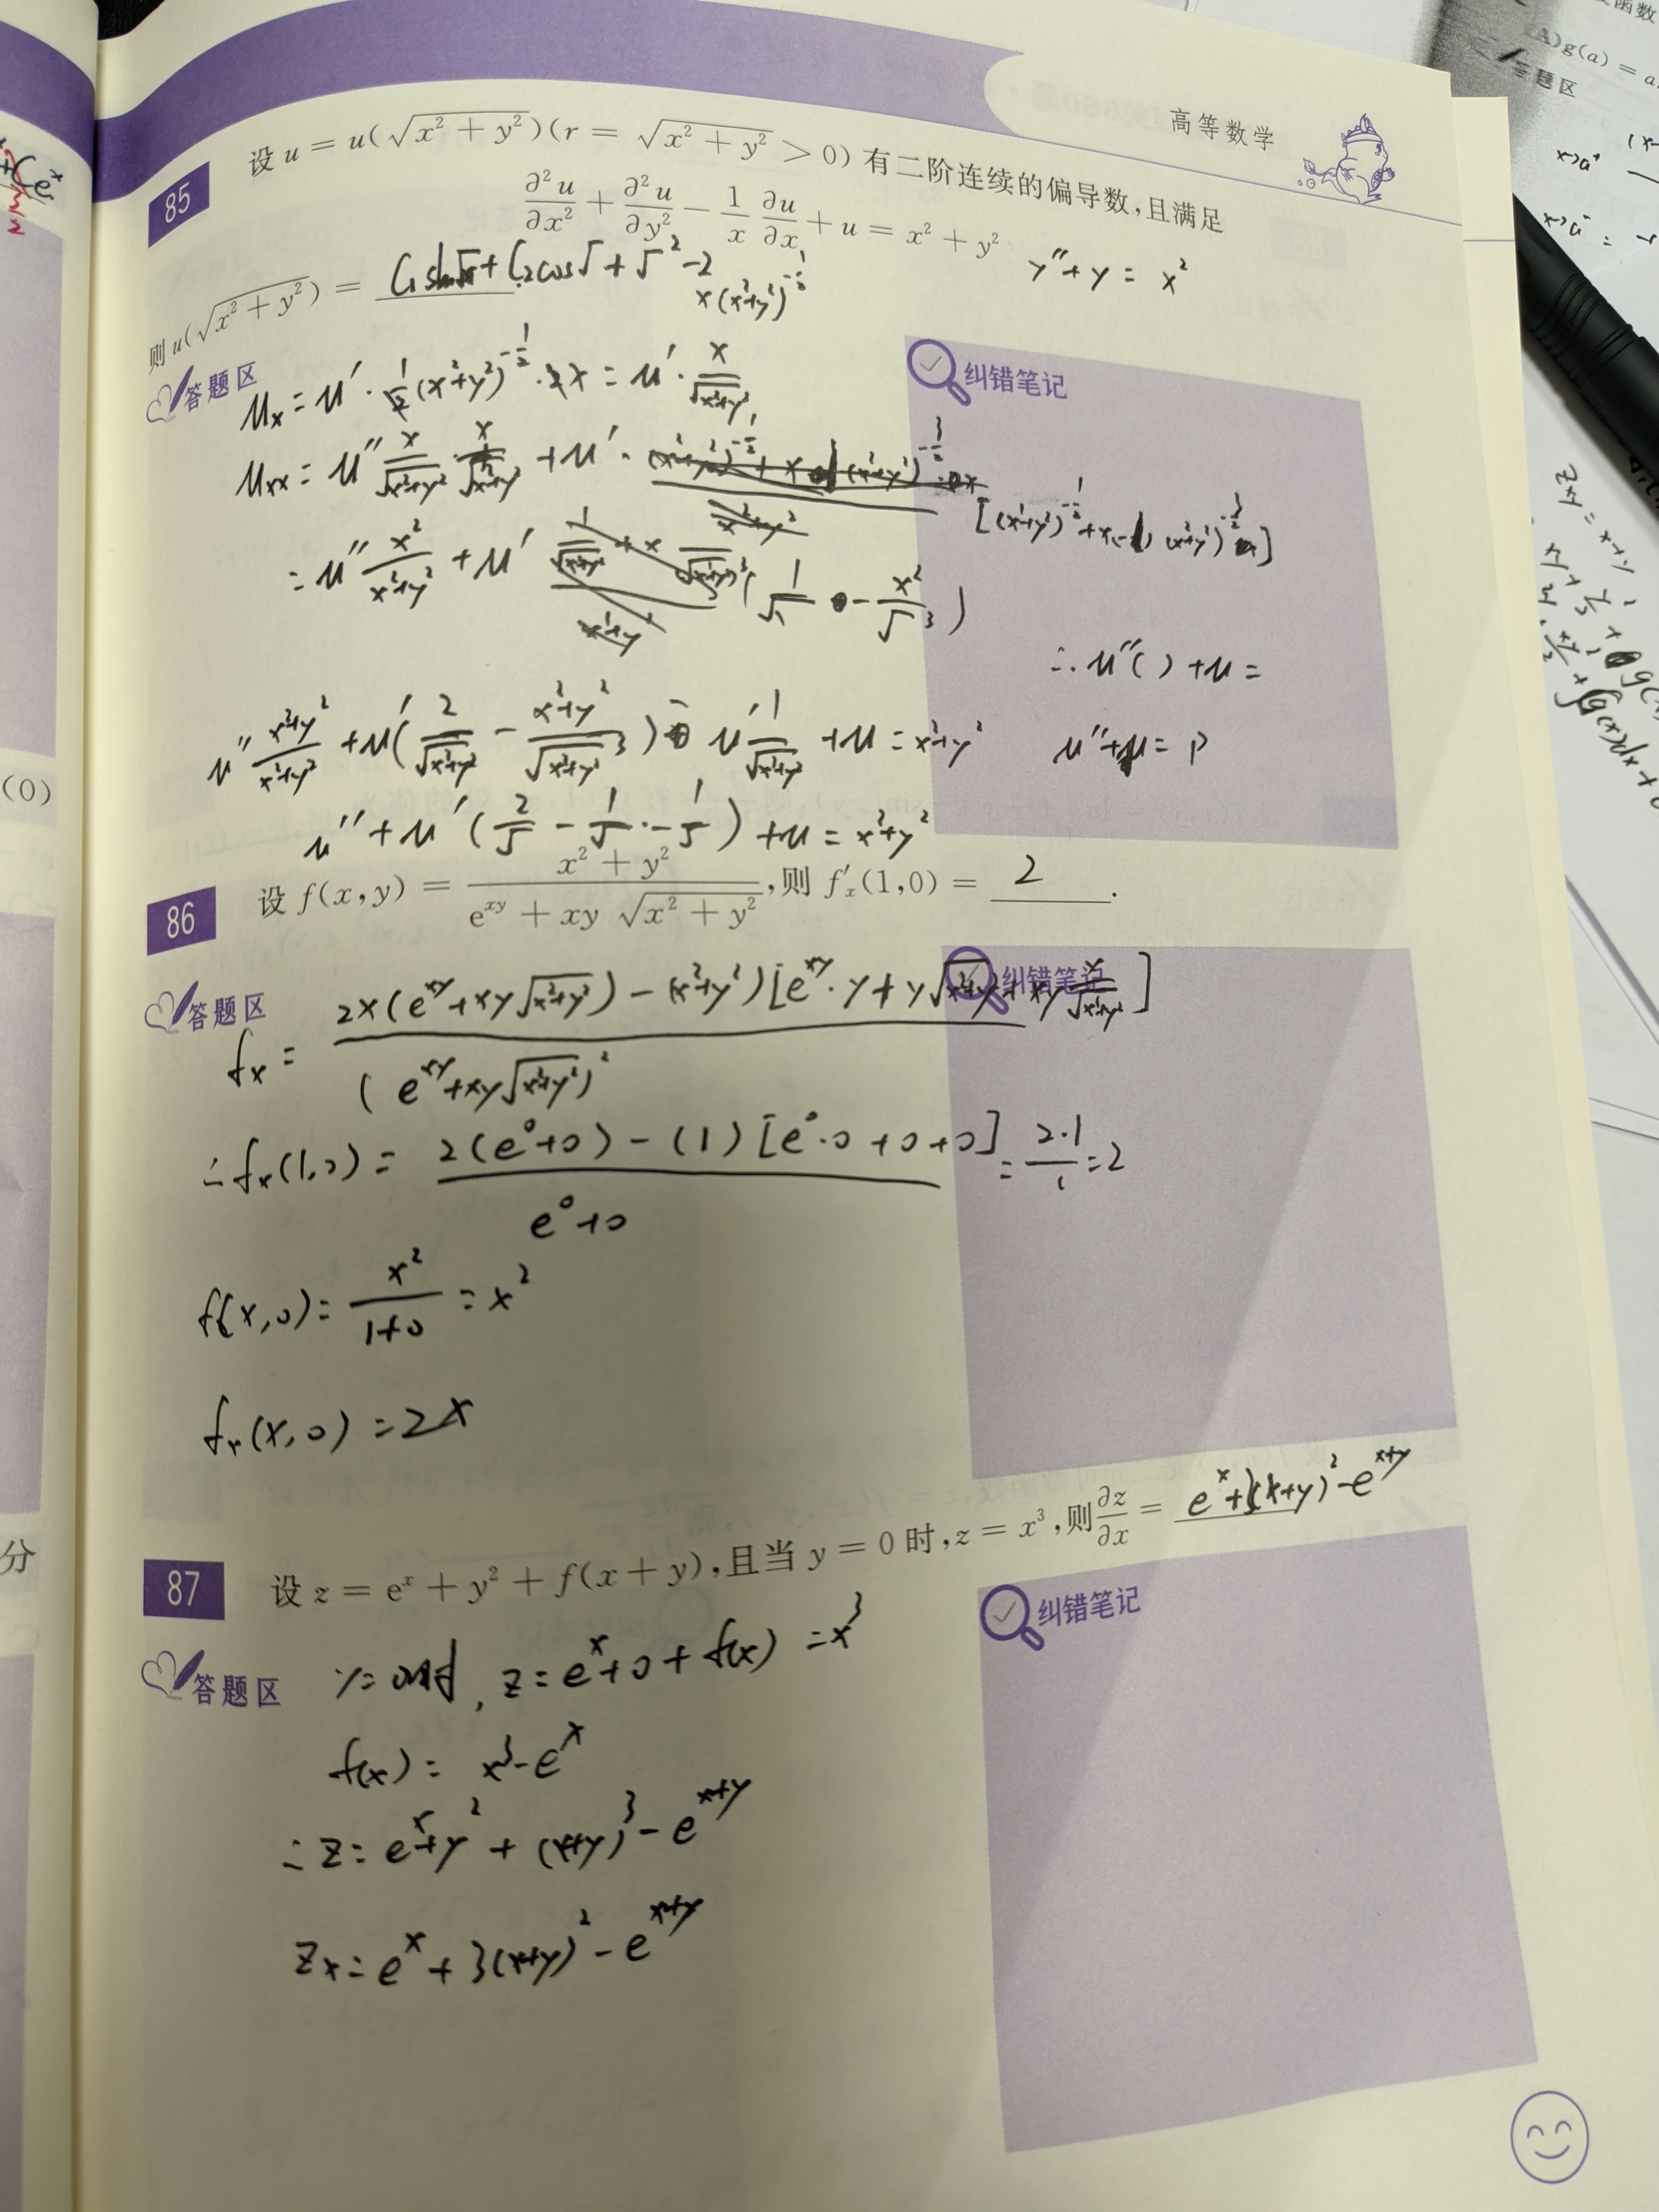 高等数学
85 设 u = u(√(x² + y²))(r = √(x² + y²) > 0) 有二阶连续的偏导数,且满足
∂²u/∂x² + ∂²u/∂y² − (1/x) ∂u/∂x + u = x² + y²
y″ + y = x²
则 u(√(x² + y²)) = C₁ sin√ + C₂cos√ + √² − 2
x(x²+y²)^(-1/2)
答题区
纠错笔记
u_x = u′ · 1/2 (x²+y²)^(-1/2) · 2x = u′ · x/√(x²+y²)
u_xx = u″ x/√(x²+y²) · x/√(x²+y²) + u′ ·
= u″ x²/(x²+y²) + u′ (1/√ − x²/√³)
∴ u″( ) + u =
u″ (x²+y²)/(x²+y²) + u′(2/√(x²+y²) − (x²+y²)/√(x²+y²)³) − u′ 1/√(x²+y²) + u = x²+y²
u″ + u = r²
u″ + u′(2/√ − 1/√ − 1/√) + u = x²+y²
86 设 f(x,y) = (x² + y²)/(e^(xy) + xy √(x² + y²)),则 f′ₓ(1,0) = 2 .
答题区
纠错笔记
f_x = (2x(e^(xy) + xy√(x²+y²)) − (x²+y²)[e^(xy) · y + y√(x²+y²) + xy x/√(x²+y²)])/(e^(xy) + xy√(x²+y²))²
∴ f_x(1,0) = (2(e⁰+0) − (1)[e⁰·0 + 0 + 0])/(e⁰+0) = 2·1/1 = 2
f(x,0) = x²/(1+0) = x²
f_x(x,0) = 2x
87 设 z = eˣ + y² + f(x + y),且当 y = 0 时,z = x³,则 ∂z/∂x = eˣ+3(x+y)²−e^(x+y)
答题区
纠错笔记
y=0时, z = eˣ + 0 + f(x) = x³
f(x) = x³ − eˣ
∴ z = eˣ + y² + (x+y)³ − e^(x+y)
z_x = eˣ + 3(x+y)² − e^(x+y)
(0)
分